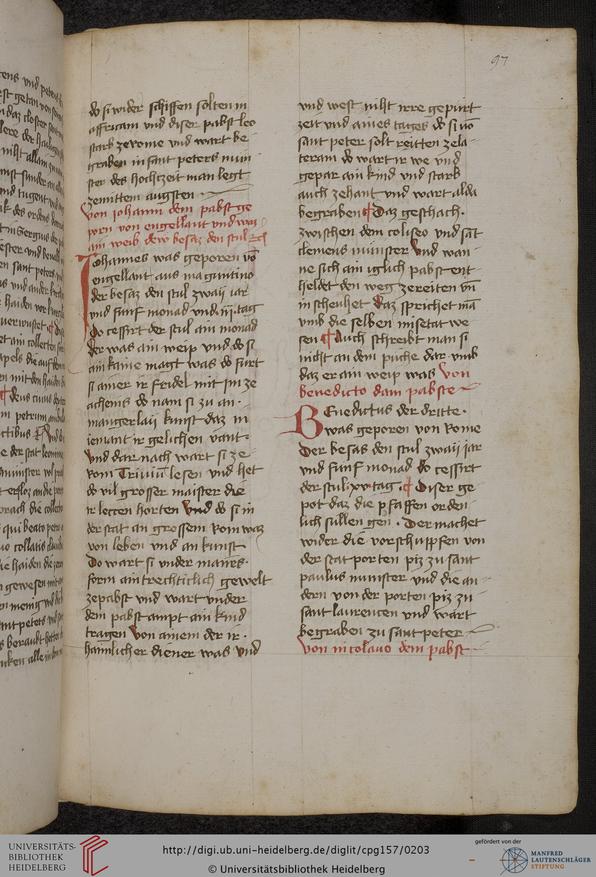 97
do si wider schiffen solten in
affricam vnd diser pabst leo
starb ze rome vnd wart be
graben in sant peters mün
ster des hochzeit man legt
ze mitten augsten
Von iohanni dem pabst ge
porn von engellant vnd waz
ain weib dew besaz den stul
Johannes was geporen vō
engellant aus magantino
der besaz den stul zwaii iar
vnd fünf monad vnd iiij tag
do cessirt der stul ain monad
der was ain weip vnd do si
ain kaine magt was do fürt
si ainer ir fridel mit jm ze
achenis do nam si zu an
mangerlaii kunst daz in
iemant ir gelichen vant
vnd dar nach wart si ze
rom Triuiū lesen vnd het
do vil grosser maister die
ir leccen horten Vnd do si in
der stat an grossem rom waz
von leben vnd an kunst
Do wart si vnder mannes
form ain trechticlich gewelt
ze pabst vnd wart vnder
dem pabstampt ain kind
tragen Von ainem der ir
haimlicher diener was vnd
vnd west niht irre gepürt
zeit vnd aines tages do si vō
sant peter solt reitten ze la
teram do wart ir we vnd
gepar ain kind vnd starb
auch zehant vnd wart alda
begraben Daz geschach
zwischen dem coliseo vnd sāt
clemens münster Vnd wan
ne sich ain iglich pabst ent
heldet den weg ze reiten vn̄
in scheuhet Daz sprichet mā
vmb die selben misetat we
sen Auch schreibt man si
nicht an dem puche dar vmb
daz er ain weip was Von
benedicto dam pabste
Benedictus der dritte
was geporen von Rome
Der besas den stul zwaii iar
vnd fünf monad do cessirt
der stul xv tag Diser ge
pot daz die pfaffen orden
lich süllen gen Der machet
wider die vorschuppfen von
der stat porten piz zu sant
paulus münster vnd die an
dern von der porten piz zu
sant laurencen vnd wart
begraben zu sant peter
Von nicolauo dem pabst
UNIVERSITÄTS-
BIBLIOTHEK
HEIDELBERG
http://digi.ub.uni-heidelberg.de/diglit/cpg157/0203
© Universitätsbibliothek Heidelberg
gefördert von der
MANFRED
LAUTENSCHLÄGER
STIFTUNG